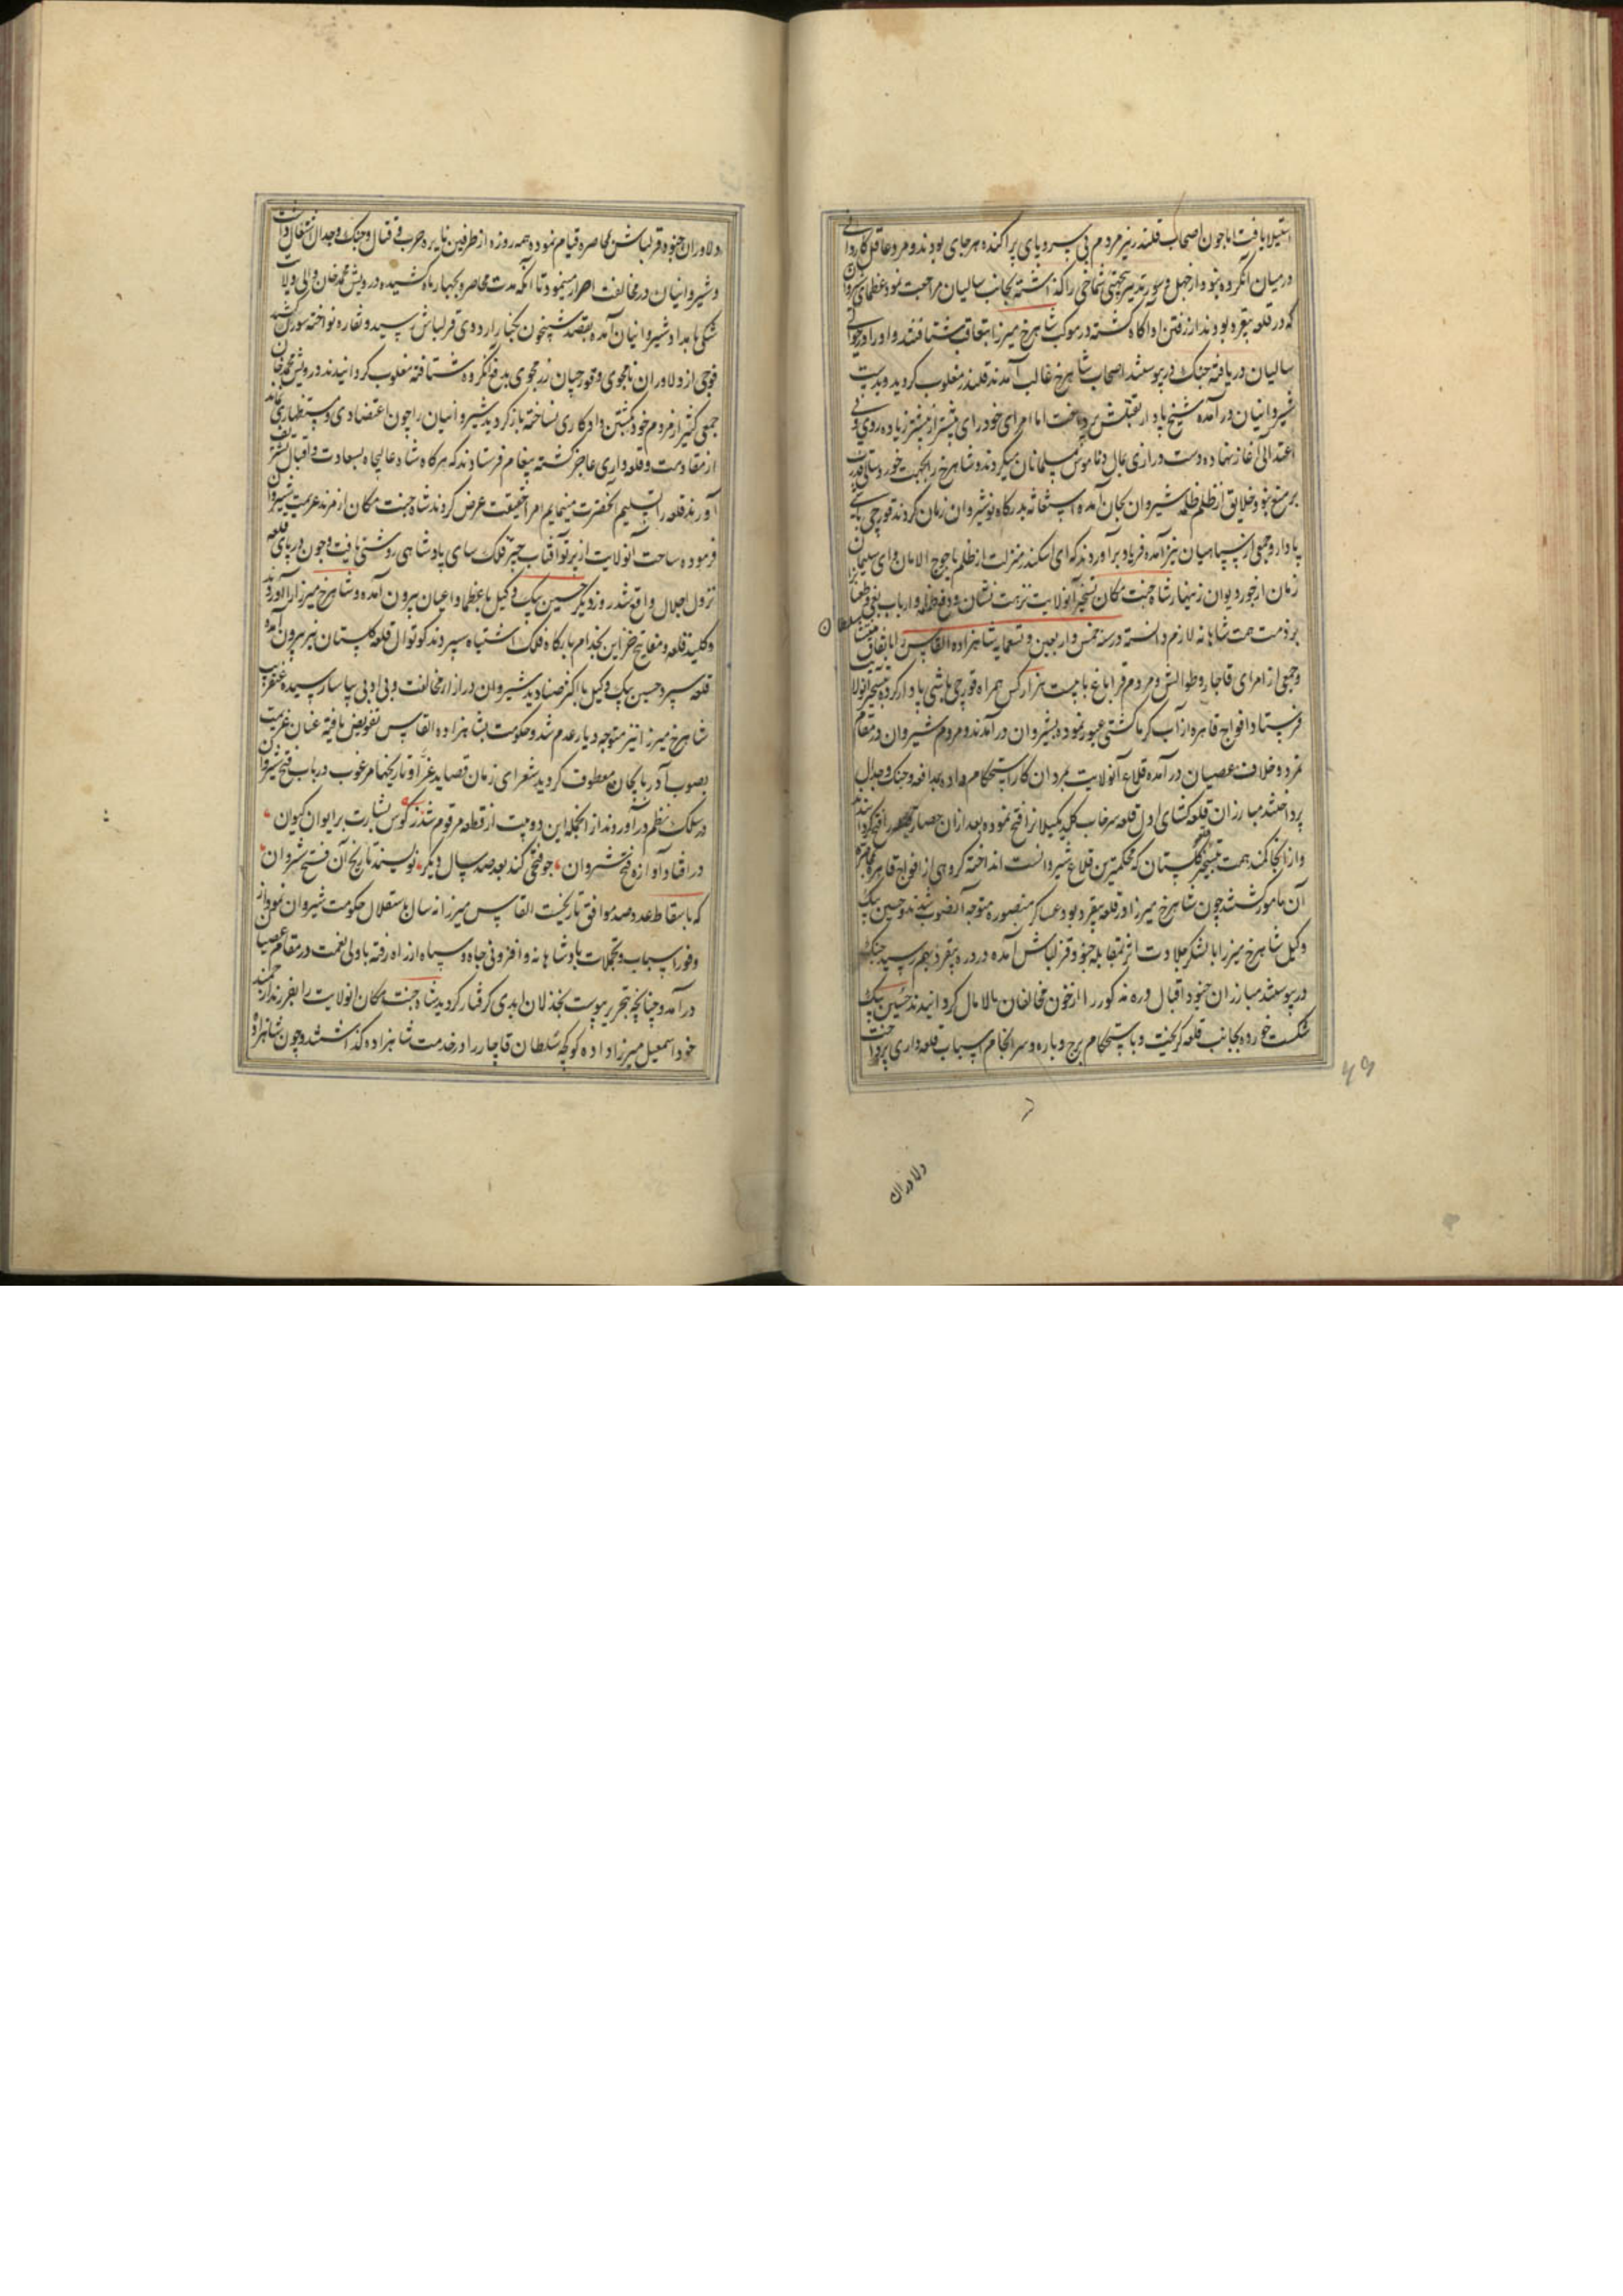 استیلا یافت اما چون اصحاب قلندر نیز مردم بی سر و پای پراکنده هر جای بودند و مرد عاقل کاردانی
در میان آنگروه نبود از جهل و سوء تدبیر بیجهتی شماخی را گذاشته بجانب سالیان مراجعت نمود عظمای شروان
که در قلعه بیقرد بودند از رفتن او آگاه گشته در موکب شاهرخ میرزا بتعاقب شتافتند و او را در حوالی
سالیان دریافته جنگ در پیوستند اصحاب شاهرخ غالب آمدند قلندر مغلوب گردید و بدست
شیروانیان درآمده شیخ پادار بقتلش پرداخت اما امرای خود رای پیشتر از پیشتر زیاده روی و بی
اعتدالی آغاز نهاده دست درازی بمال و ناموس مسلمانان میکردند و شاهرخ را بجهت خورد سالی قدرت
بر منع نبود خلایق از ظلم ظلمه شیروان بجان آمده استغاثه بدرگاه نوشیروان زمان کردند قورچی باشی
پادار و جمعی از سپاهیان نیز آمده فریاد برآوردند که ای اسکندر منزلت از ظلم یاجوج الامان وای سلیمان
زمان از جور دیوان زنهار شاه جنت مکان تسخیر آنولایت نزهت نشان و دفع ظلمه و ارباب بغی و طغیانرا
بر ذمت همت شاهانه لازم دانسته در سنه خمس و اربعین و تسعمایه شاهزاده القاس را باتفاق منتشا سلطان
و جمعی از امرای قاجار و طوالش و مردم قراباغ با بیست هزار کس همراه قورچی باشی پادار کرده بتسخیر آنولایت
فرستاد افواج قاهره از آب کر با کشتی عبور نموده بشیروان درآمدند و مردم شیروان در مقام
تمرد و خلاف عصیان درآمده قلاع آنولایت بمردان کار استحکام داده بمدافعه و جنگ و جدال
پرداختند مبارزان قلعه گشای اول قلعه سرخاب کلید گیلانرا فتح نموده بعد از آن حصار را فتح کردانیدند
و از آنجا کمند همت بتسخیر قلعه گلستان که محکمترین قلاع شیروانست انداخته گروهی از افواج قاهره بمحاصره
آن مامور گشتند چون شاهرخ میرزا در قلعه بیقرد بود عساکر منصوره متوجه آنصوب شدند و حسین بیک
وکیل شاهرخ میرزا با لشکر جلادت اثر بمقابله جنود قزلباش آمده در دره بیقرد بهم رسیده جنگ
در پیوستند مبارزان جنود اقبال دره مذکور را از خون مخالفان مالامال گردانیدند حسین بیک
شکست خورده بجانب قلعه گریخت و باستحکام برج و باره و سرانجام اسباب قلعه داری پرداخت
دلاوران
دلاوران جنود قزلباش بمحاصره قیام نموده همه روزه از طرفین نایره حرب و قتال و جنگ و جدال اشتعال داشت
و شیروانیان در مخالفت اصرار مینمودند تا آنکه مدت محاصره بچهار ماه کشیده درویش محمد خان والی ولایت
شکی بامداد شیروانیان آمده بقصد شبیخون بکنار اردوی قزلباش رسید و نقاره نواخته سورن کشید
فوجی از دلاوران نامجوی و قورچیان رزمجوی بدفع آنگروه شتافته مغلوب گردانیدند درویش محمد خان
جمعی کثیر از مردم خود بکشتن داد کاری نساخته باز گردید شیروانیان را چون اعتضادی و مستظهاری نماند
از مقاومت و قلعه داری عاجز گشته پیغام فرستادند که هر گاه شاه عالیجاه بسعادت و اقبال تشریف
آورند قلعه را تسلیم آنحضرت مینمایم امرا حقیقت عرض کردند شاه جنت مکان از مرند عزیمت شیروان
فرموده ساحت آنولایت از پرتو آفتاب چتر فلک سای پادشاهی روشنی یافت و چون در پای قلعه
نزول اجلال واقع شد روز دیگر حسین بیک وکیل با عظما و اعیان بیرون آمده و شاهرخ میرزا را آوردند
و کلید قلعه و مفاتیح خزاین بخدام بارگاه فلک اشتباه سپردند کوتوال قلعه گلستان نیز بیرون آمده
قلعه سپرد حسین بیک وکیل با اکثر صنادید شیروان در ازاء مخالفت و بی ادبی بیاسا رسیده عنقریب
شاهرخ میرزا نیز متوجه دیار عدم شد و حکومت بشاهزاده القاس تفویض یافته عنان عزیمت
بصوب آذربایجان معطوف گردید شعرای زمان قصاید غرا و تاریخها مرغوب در باب فتح شیروان
در سلک نظم درآوردند از آنجمله این دو بیت از قطعه مرقوم شد ز کوس بشارت بر ایوان کیوان
در افتاد آوازه فتح شروان چو فتحی کند بعد صد سال دیگر نویسند تاریخ آن فتح شروان
که باسقاط عدد صد موافق تاریخست القاس میرزا نه سال باستقلال حکومت شیروان نمود از
وفور اسباب و تجملات پادشاهانه و افزونی جاه و سپاه از راه رفته با ولی نعمت در مقام عصیان
درآمد و چنانچه بتحریر پیوست بخذلان ابدی گرفتار گردید شاه جنت مکان آنولایت را بفرزند ارجمند
خود اسمعیل میرزا داده کوکچه سلطان قاجار را در خدمت شاهزاده گذاشتند و چون شاهزاده